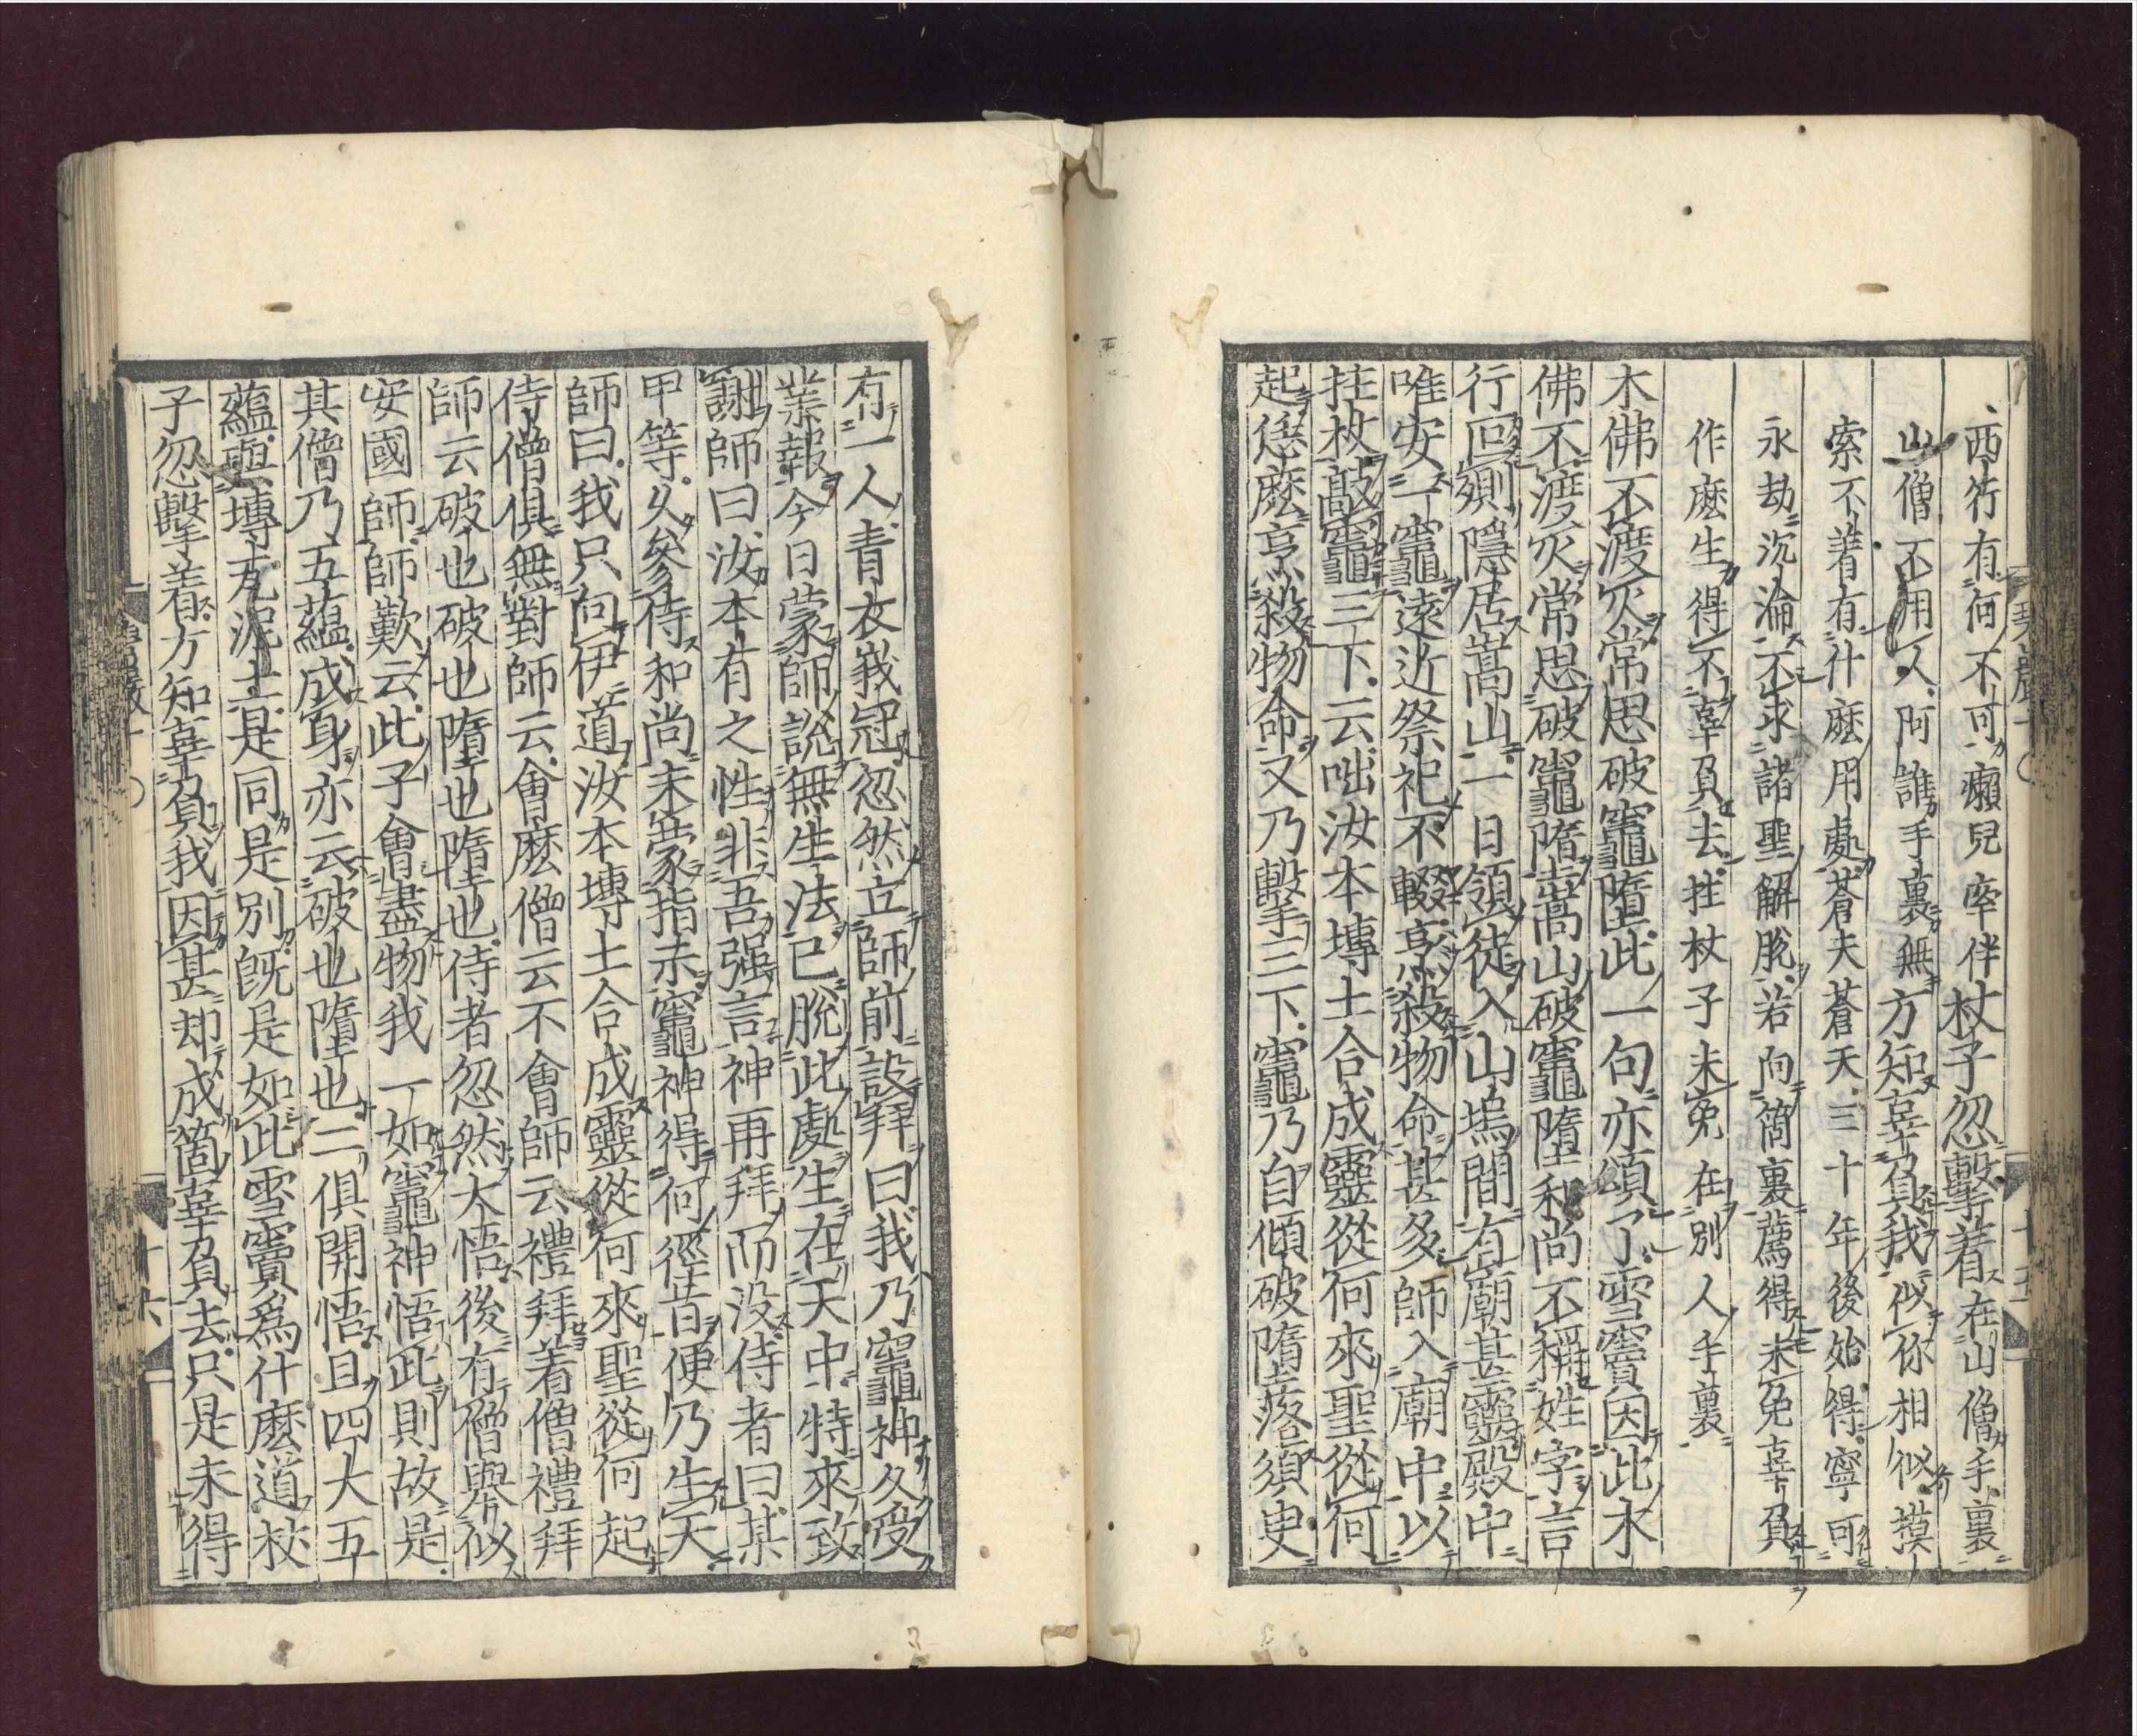 西竹有何不可癩兒牽伴杖子忽擊着在山僧手裏
山僧不用人阿誰手裏無方知辜負我似你相似摸
索不着有什麼用處蒼天蒼天三十年後始得寧可
永劫沉淪不求諸聖解脫若向箇裏薦得未免辜負
作麼生得不辜負去拄杖子未免在別人手裏
木佛不渡火常思破竈墮此一句亦頌了雪竇因此木
佛不渡火常思破竈墮嵩山破竈墮和尚不稱姓字言
行叵測隱居嵩山一日領徒入山塢間有廟甚靈殿中
唯安一竈遠近祭祀不輟烹殺物命甚多師入廟中以
拄杖敲竈三下云咄汝本塼土合成靈從何來聖從何
起恁麼烹殺物命又乃擊三下竈乃自傾破墮落須臾
有一人青衣峩冠忽然立師前設拜曰我乃竈神久受
業報今日蒙師說無生法已脫此處生在天中特來致
謝師曰汝本有之性非吾强言神再拜而没侍者曰某
甲等久參侍和尚未蒙指示竈神得何徑旨便乃生天
師曰我只向伊道汝本塼土合成靈從何來聖從何起
侍僧俱無對師云會麼僧云不會師云禮拜着僧禮拜
師云破也破也墮也墮也侍者忽然大悟後有僧舉似
安國師師歎云此子會盡物我一如竈神悟此則故是
其僧乃五蘊成身亦云破也墮也二俱開悟且四大五
蘊與塼瓦泥土是同是別旣是如此雪竇爲什麼道杖
子忽擊着方知辜負我因甚却成箇辜負去只是未得
十六